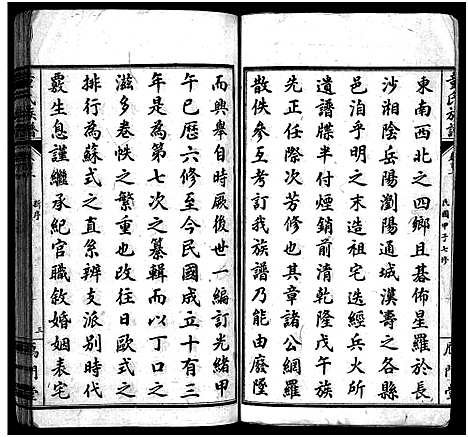 東南西北之四鄉且碁佈星羅於長
沙湘陰岳陽瀏陽通城漢壽之各縣
也洎乎明之末造祖里選經兵火所
遺譜牒半付煙銷前清乾隆戊午族
先正任際次芳修也其章諸公網羅
散佚參互考訂我族譜乃能由廢墜
民國甲子七修
而興舉自時厥後世一編訂光緒甲
午已歷六修至今民國成立十有三
年是為第七次之纂輯而以丁口之
滋多卷帙之繁重也改日歐式之
排行為蘇式之直系辨支派別時代
覈生息謹繼承紀官職敘婚姻表宅
新序
三